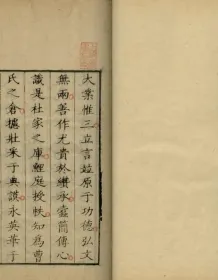 大業惟三立言竝原于功德弘文
無兩善作尤貴於纘承靈蘭傳心
識是杜家之庫鯉庭授帙知爲曹
氏之倉攄壯采于典謨永英華于